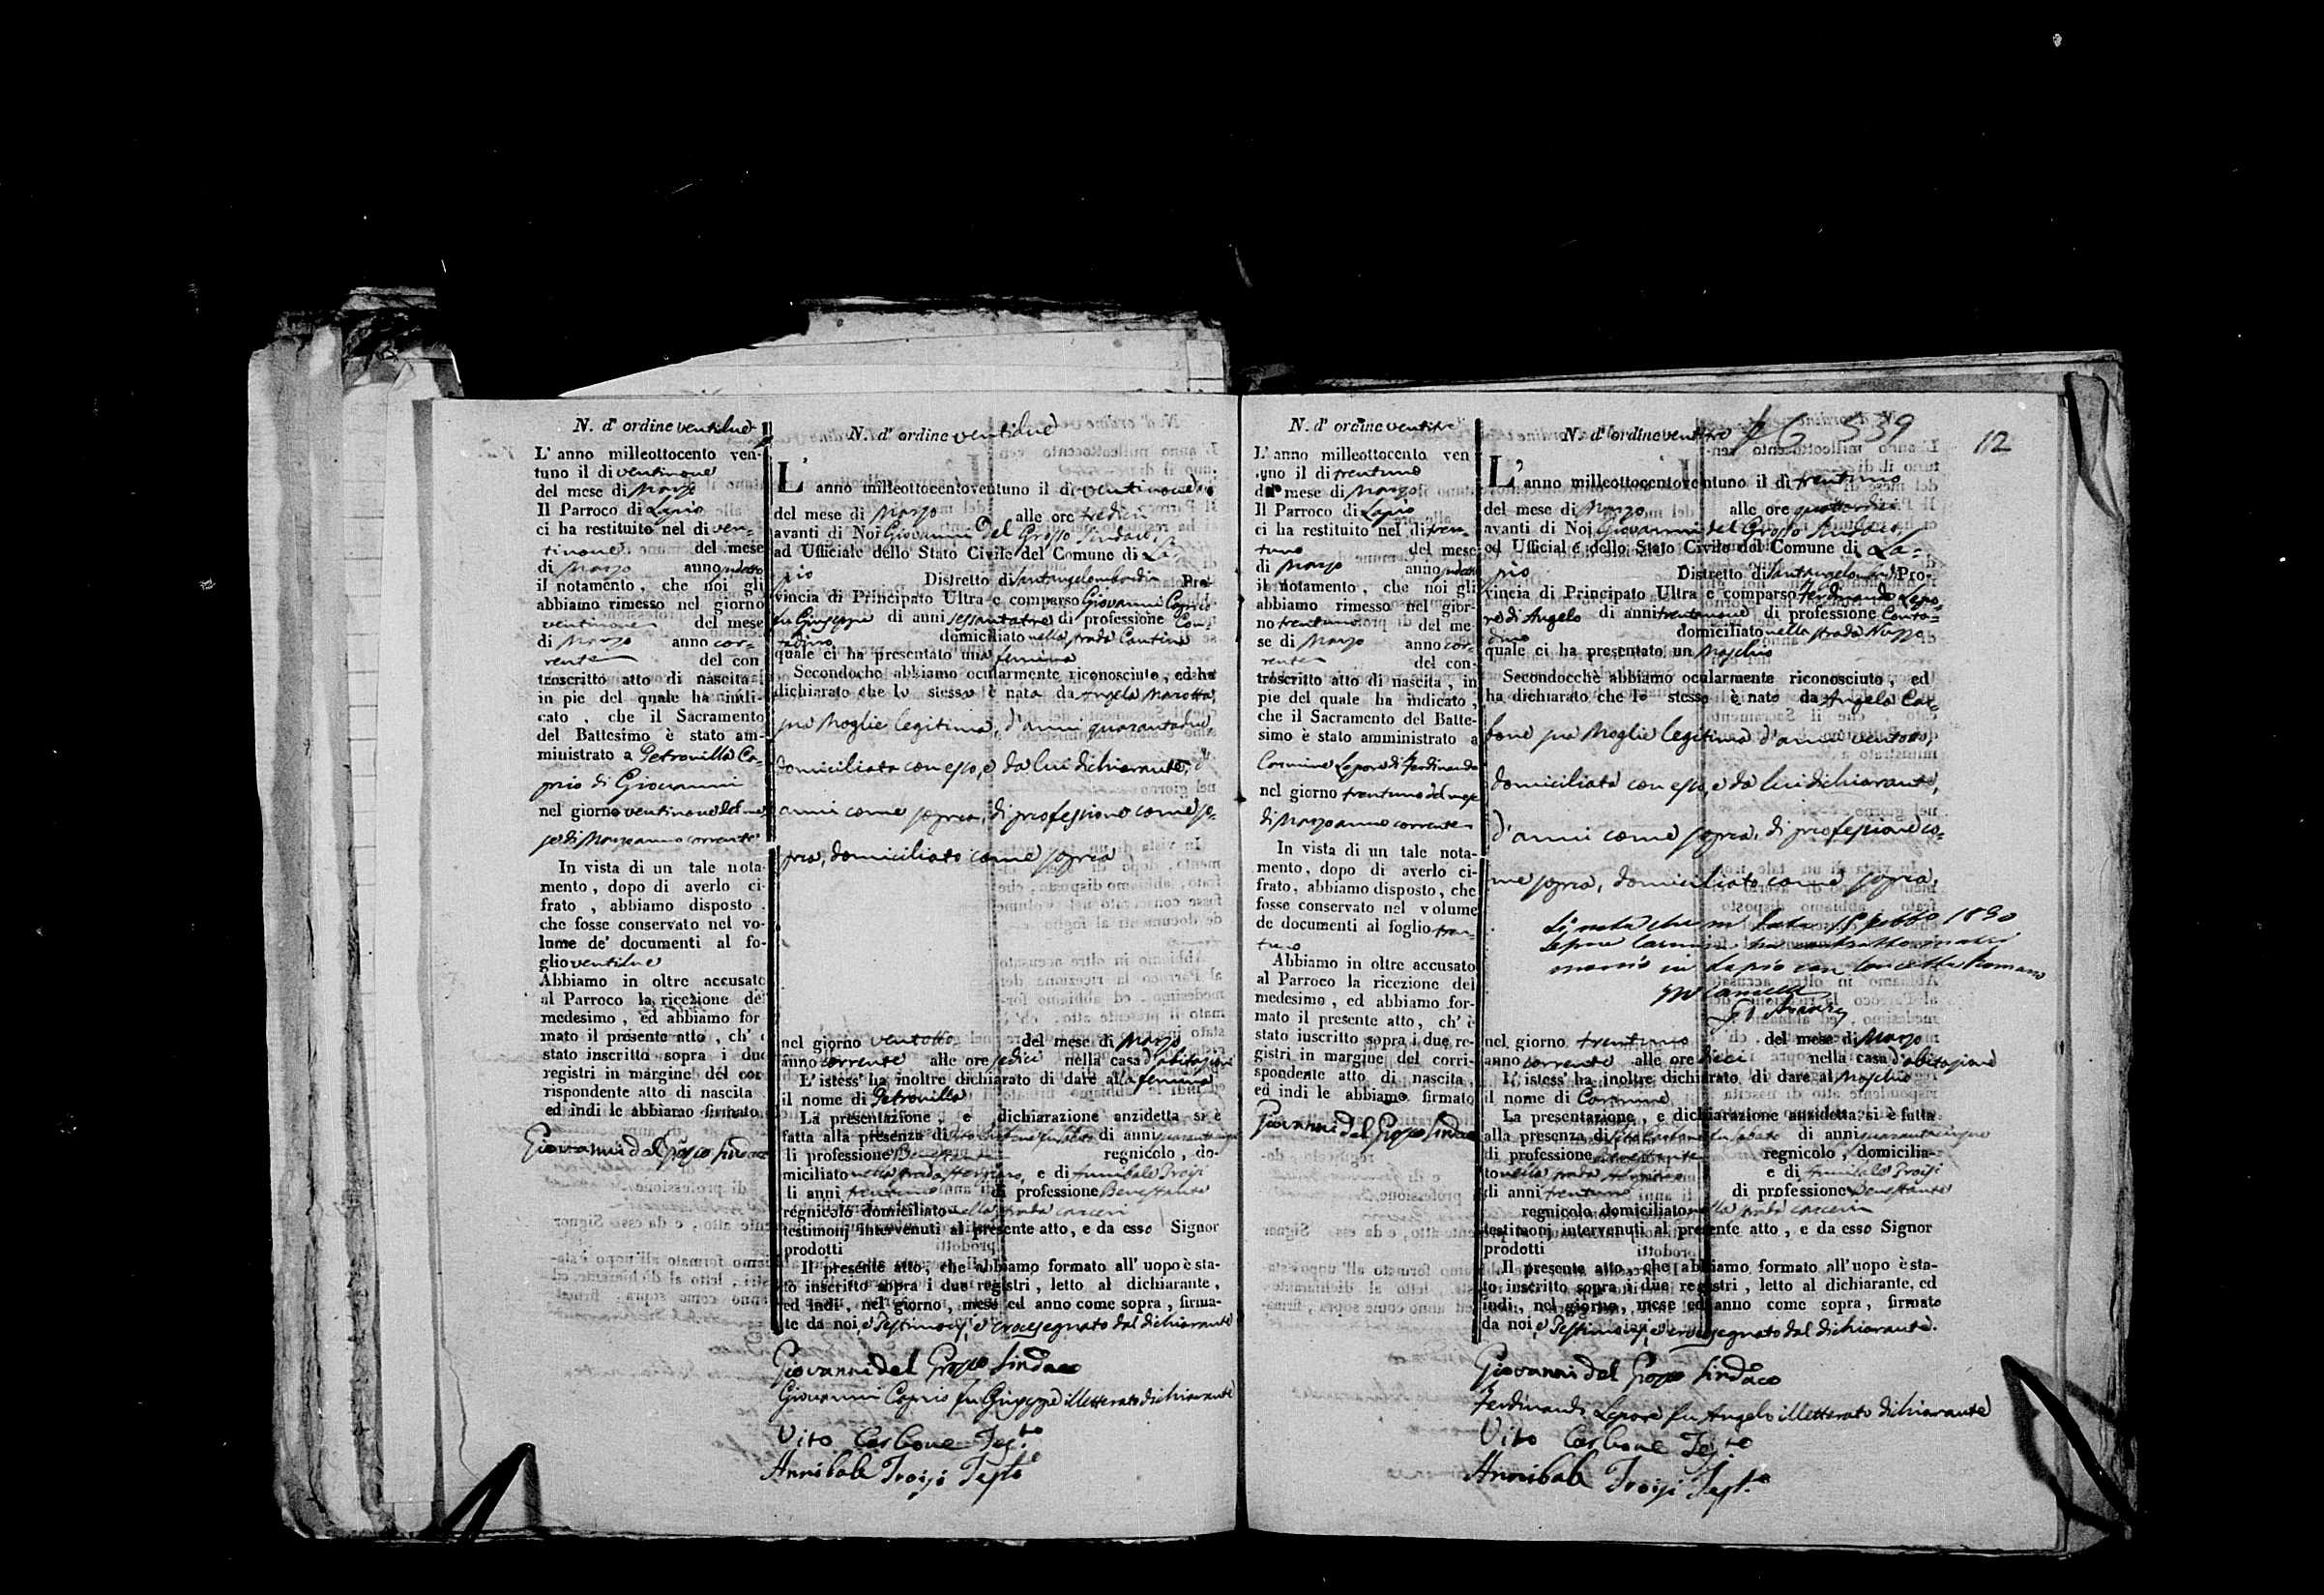 N. d' ordine ventidue
L' anno milleottocento ven-
tuno il di ventinove
del mese di Marzo
Il Parroco di Lapio
ci ha restituito nel di ven-
tinove del mese
di Marzo anno
il notamento, che noi gli
abbiamo rimesso nel giorno
ventinove del mese
di Marzo anno cor-
rente del con
troscritto atto di nascita
in pie del quale ha indi-
cato , che il Sacramento
del Battesimo è stato am-
ministrato a Petronilla Ca-
prio di Giovanni
nel giorno ventinove del me-
se di Marzo anno corrente
In vista di un tale nota-
mento , dopo di averlo ci-
frato , abbiamo disposto
che fosse conservato nel vo-
lume de' documenti al fo-
glio ventidue
Abbiamo in oltre accusato
al Parroco la ricezione de
medesimo , ed abbiamo for
mato il presente atto , ch'
stato inscritto sopra i due
registri in margine del cor
rispondente atto di nascita
ed indi le abbiamo firmato
Giovanni del Grosso Sindaco
N. d' ordine ventidue
L' anno milleottocentoventuno il di ventinove
del mese di Marzo alle ore tredici
avanti di Noi Giovanni Del Grosso Sindaco,
ad Ufficiale dello Stato Civile del Comune di La-
pio Distretto di Santangelombardi Pro-
vincia di Principato Ultra è comparso Giovanni Caprio
fu Giuseppe di anni sessantatre di professione Con-
tadino domiciliato nella strada Cantina
quale ci ha presentato una femina
Secondochè abbiamo ocularmente riconosciuto , ed ha
dichiarato che lo stesso è nata da Angela Marotta,
sua Moglie legitima, d'anni quarantadue
domiciliata con esso, e da lui dichiarante, d'
anni come sopra, di professione come so-
pra, domiciliato come sopra
nel giorno ventotto del mese di Marzo
anno corrente alle ore sedici nella casa d'abitazione
L' istess' ha inoltre dichiarato di dare alla femina
il nome di Petronilla
La presentazione , e dichiarazione anzidetta si è
fatta alla presenza di Vito Carbone fu Sabato di anni
di professione Benestante regnicolo , do-
miciliato nella strada , e di Annibale Troisi
di anni trentuno di professione Benestante
regnicolo domiciliato nella strada carceri
testimonj intervenuti al presente atto , e da esso Signor
prodotti
Il presente atto , che abbiamo formato all' uopo è sta-
to inscritto sopra i due registri , letto al dichiarante ,
ed indi , nel giorno , mese ed anno come sopra , firma-
te da noi, e Testimonj, e crocesegnato dal dichiarante
Giovanni del Grosso Sindaco
Giovanni Caprio fu Giuseppe illetterato dichiarante
Vito Carbone Test.to
Annibale Troisi Testo
N. d' ordine ventitre
L' anno milleottocento ven
tuno il di trentuno
del mese di Marzo
Il Parroco di Lapio
ci ha restituito nel di tren-
tuno del mese
di Marzo anno
il notamento , che noi gli
abbiamo rimesso nel gior-
no trentuno del me-
se di Marzo anno cor-
rente del con-
troscritto atto di nascita , in
pie del quale ha indicato ,
che il Sacramento del Batte-
simo è stato amministrato a
Carmine Lepore di Ferdinando
nel giorno trentuno del mese
di Marzo anno corrente
In vista di un tale nota-
mento, dopo di averlo ci-
frato, abbiamo disposto, che
fosse conservato nel volume
de documenti al foglio tren-
tuno
Abbiamo in oltre accusato
al Parroco la ricezione del
medesimo , ed abbiamo for-
mato il presente atto, ch' è
stato inscritto sopra i due re-
gistri in margine del corri-
spondente atto di nascita ,
ed indi le abbiamo firmato
Giovanni del Grosso Sindaco
N. d' ordine ventitre 539
12
L' anno milleottocentoventuno il di trentuno
del mese di Marzo alle ore quattordici
avanti di Noi Giovanni del Grosso Sindaco,
ed Ufficiale dello Stato Civile del Comune di La-
pio Distretto di Santangelombardi Pro-
vincia di Principato Ultra è comparso Ferdinando Lepo-
re di Angelo di anni trentanove di professione Conta-
dino domiciliato nella strada Nuzzo
quale ci ha presentato un Maschio
Secondocchè abbiamo ocularmente riconosciuto , ed
ha dichiarato che lo stesso è nato da Angela Car-
bone sua Moglie legitima d'anni ventotto,
domiciliata con esso, e da lui dichiarante,
d'anni come sopra, di professione co-
me sopra, domiciliato come sopra,
Si nota che in data 1890
Lepore Carmine ha contratto matri
monio in Lapio con Concetta Romano
nel giorno trentuno del mese di Marzo
anno corrente alle ore dieci nella casa d'abitazione
L' istess' ha inoltre dichiarato di dare al Maschio
il nome di Carmine
La presentazione , e dichiarazione anzidetta si è fatta
alla presenza di Vito Carbone fu Sabato di anni quarantacinque
di professione Benestante regnicolo , domicilia-
to nella strada e di Annibale Troisi
di anni trentuno di professione Benestante
regnicolo domiciliato nella strada carceri
testimonj intervenuti al presente atto , e da esso Signor
prodotti
Il presente atto , che abbiamo formato all' uopo è sta-
to inscritto sopra i due registri , letto al dichiarante, ed
indi , nel giorno , mese ed anno come sopra , firmato
da noi, e Testimonj, e crocesegnato dal dichiarante.
Giovanni del Grosso Sindaco
Ferdinando Lepore fu Angelo illetterato dichiarante
Vito Carbone Test.to
Annibale Troisi Test.o